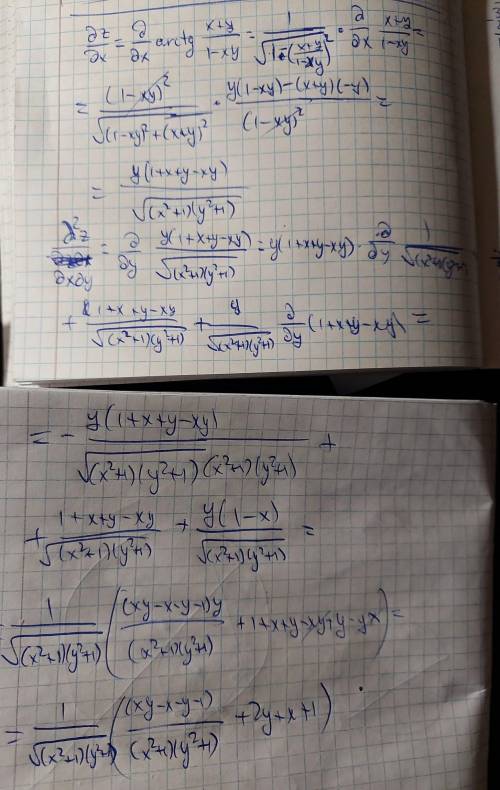 ∂z/∂x = ∂/∂x arctg (x+y)/(1-xy) = 1/√(1-((x+y)/(1-xy))²) · ∂/∂x (x+y)/(1-xy) =
= (1-xy)²/√((1-xy)²+(x+y)²) · (y(1-xy)-(x+y)(-y))/(1-xy)² =
= y(1+x+y-xy)/√((x²+1)(y²+1))
∂²z/∂x∂y = ∂/∂y y(1+x+y-xy)/√((x²+1)(y²+1)) = y(1+x+y-xy) · ∂/∂y 1/√((x²+1)(y²+1))
+ (1+x+y-xy)/√((x²+1)(y²+1)) + y/√((x²+1)(y²+1)) ∂/∂y (1+x+y-xy) =
= - y(1+x+y-xy)/(√((x²+1)(y²+1)) (x²+1)(y²+1)) +
+ (1+x+y-xy)/√((x²+1)(y²+1)) + y(1-x)/√((x²+1)(y²+1)) =
1/√((x²+1)(y²+1)) ((xy-x-y-1)y/((x²+1)(y²+1)) + 1+x+y-xy+y-yx) =
= 1/√((x²+1)(y²+1)) ((xy-x-y-1)/((x²+1)(y²+1)) + 2y+x+1)